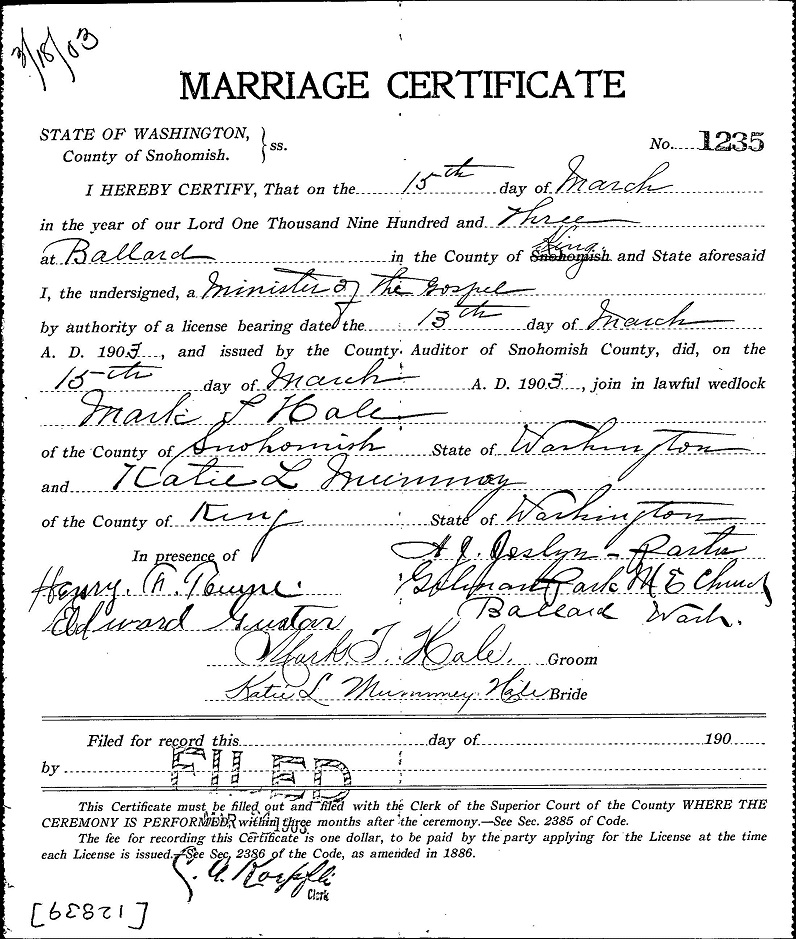 3/18/03
MARRIAGE CERTIFICATE
STATE OF WASHINGTON,
County of Snohomish. } ss.
No. 1235
I HEREBY CERTIFY, That on the 15th day of March
in the year of our Lord One Thousand Nine Hundred and Three
at Ballard in the County of Snohomish King and State aforesaid
I, the undersigned, a Minister of the Gospel
by authority of a license bearing date the 13th day of March
A. D. 1903, and issued by the County Auditor of Snohomish County, did, on the
15th day of March A. D. 1903, join in lawful wedlock
Mark T Hale
of the County of Snohomish State of Washington
and Katie L Mummey
of the County of King State of Washington
In presence of A. J. Joslyn - Pastor
Henry. F. Gilman Park M E Church
Edward Gustar Ballard Wash.
Mark. T. Hale. Groom
Katie L Mummey Hale Bride
Filed for record this day of 190
by
FILED
This Certificate must be filled out and filed with the Clerk of the Superior Court of the County WHERE THE
CEREMONY IS PERFORMED, within three months after the ceremony.—See Sec. 2385 of Code.
MAR 1903
The fee for recording this Certificate is one dollar, to be paid by the party applying for the License at the time
each License is issued.—See Sec. 2386 of the Code, as amended in 1886.
Clerk
[12839]